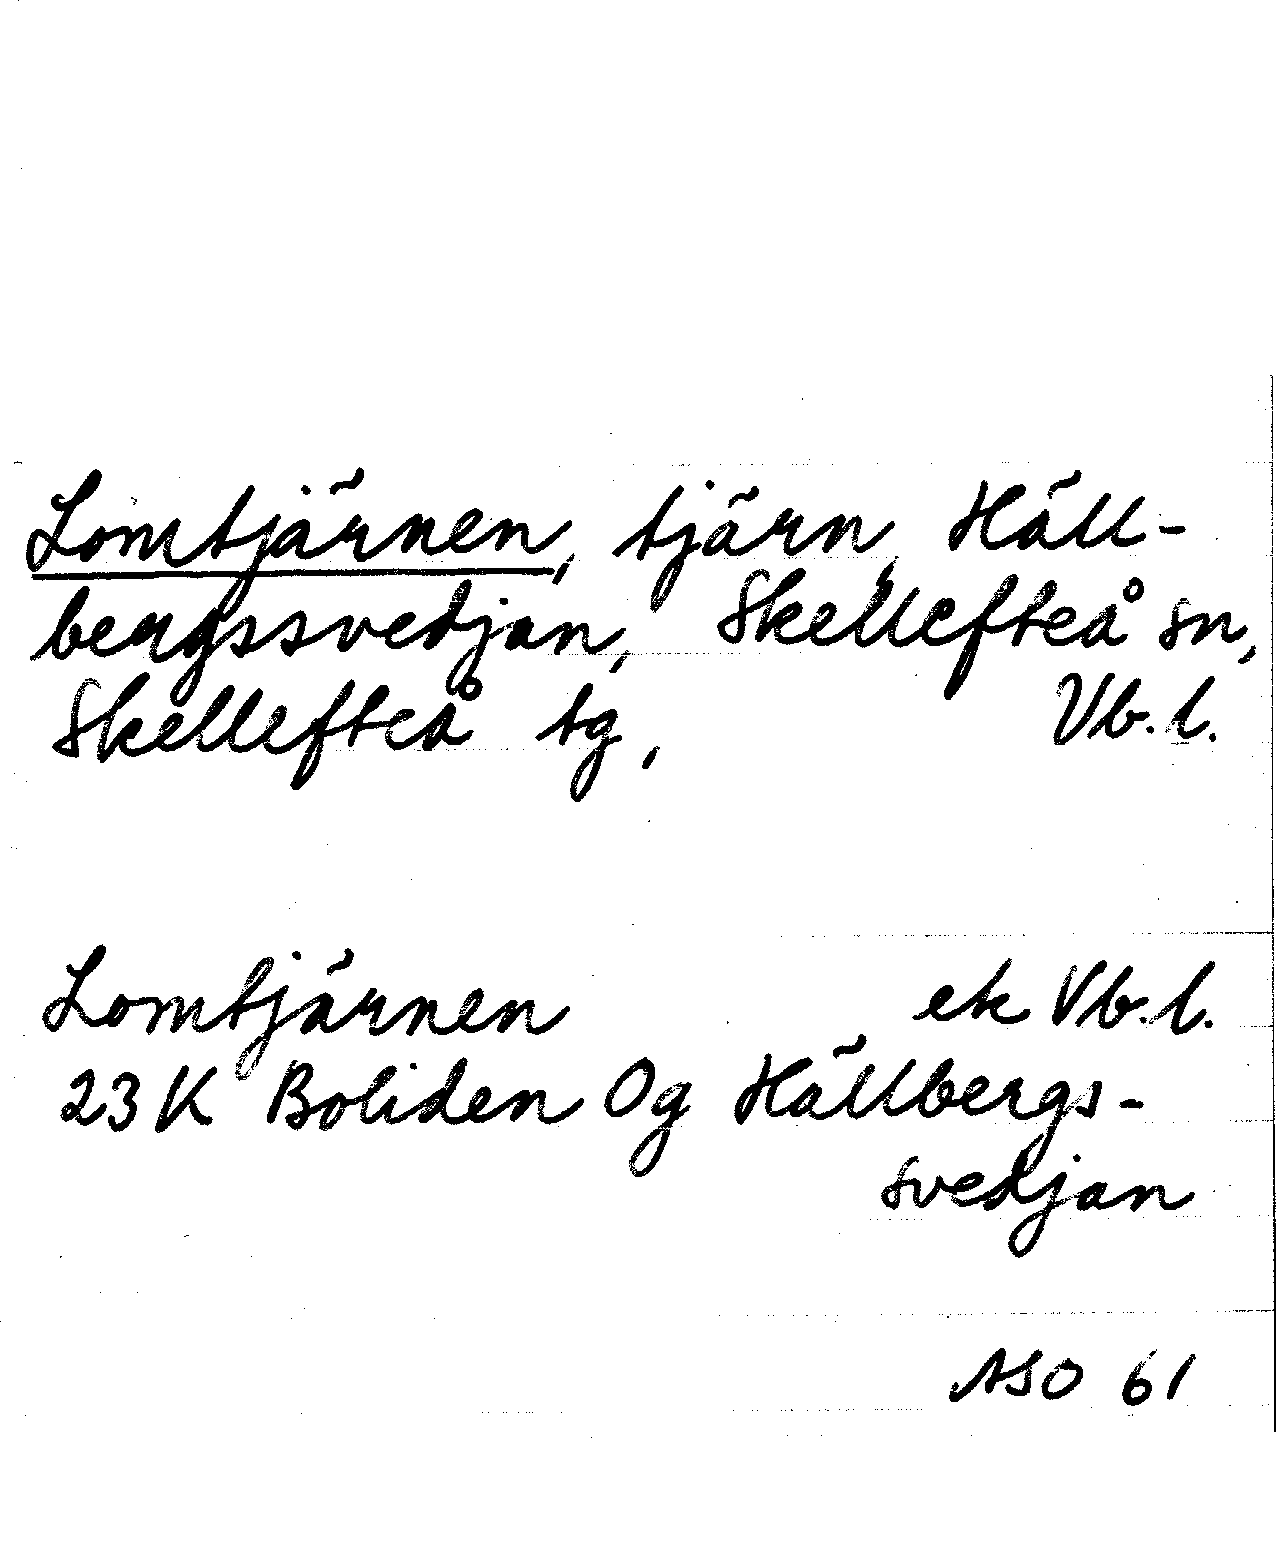 Lomtjärnen, tjärn, Häll-
bergssvedjan, Skellefteå sn,
Skellefteå tg, Vb.l.
Lomtjärnen ek Vb.l.
23K Boliden 0g Hällbergs-
svedjan
ASO 61